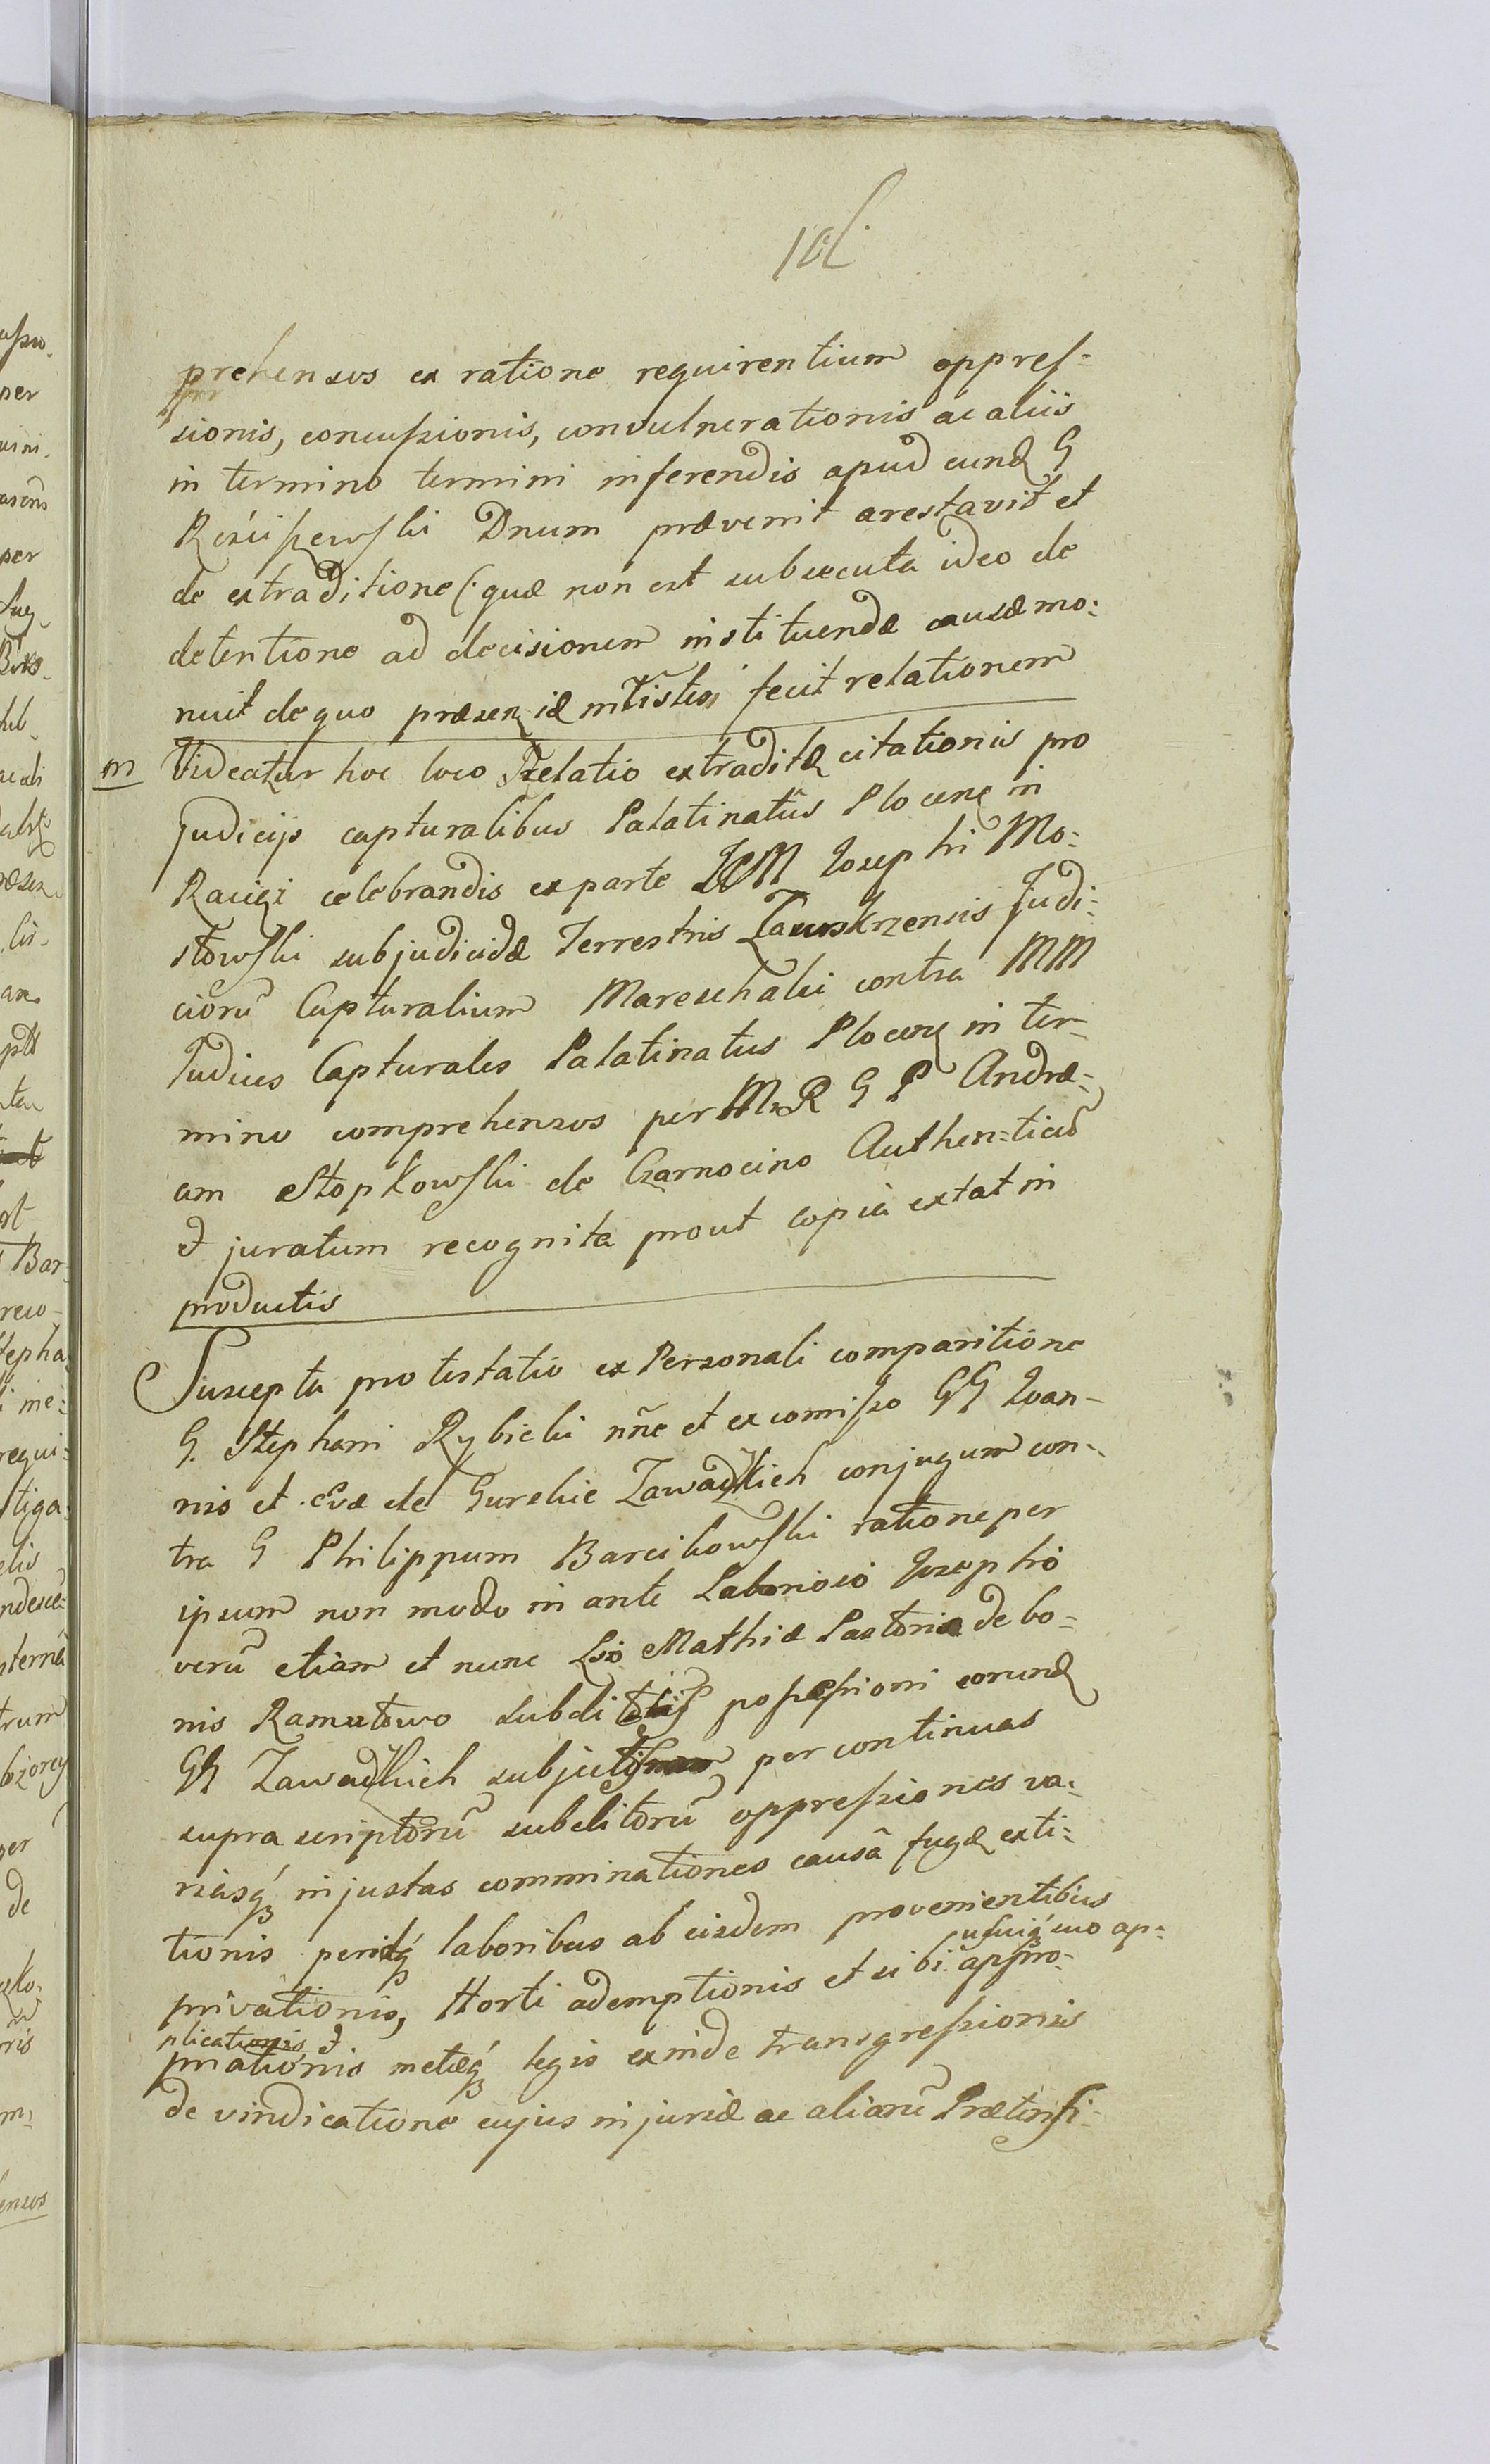 prehensos ex ratione requirentium oppres-
sionis, concussionis, convulnerationis ac aliis
in termino termini inferendis apud eund G
Dnum prævenit arestavit et
de extraditione (: quæ non est subsecuta ideo de
detentione ad decisionem instituendæ causæ mo:
nuit de quo fecit relationem
m Videatur hoc loco Relatio extraditæ citationis pro
judicijs capturalibus Palatinatûs Plocens in
Raciąż celebrandis ex parte Josephi Mo:
stowski subjudicidæ Terrestris Zawskrzensis Judi:
ciorũ Capturalium Mareschalci contra MM
Judices Capturales Palatinatus Plocens in ter-
mino comprehensos per MR G P Andræ-
am Stopkowski de Czarnocino Authen=ticũ
et juratum recognita prout copia extat in
productis
Suscepta protestatio ex Personali comparitione
G. Stephani Rybicki nñe et ex comisso GG Joan-
nis et Evæ de Gurskie Zawadzkich conjugum con-
tra G Philippum Barcikowski ratione per
ipsum non modo in ante Laborioso Josepho
verũ etiam et nunc Lso Mathiæ Pastoris de bo-
nis Ramutowo subditis possessioni eorund
GG Zawadzkich subjectis per continuas
supra scriptorũ subditorũ oppressiones va:
riasq́ injustas comminationes causâ fugæ exti:
tionis laboribus ab eisdem provenientibus
usuiq́ suo ap-
privationis, Horti ademptionis et sibi appro-
plicationis et
priationis metæq́ legis exinde transgressionis
de vindicatione cujus injuriæ ac aliarũ Prætensi-